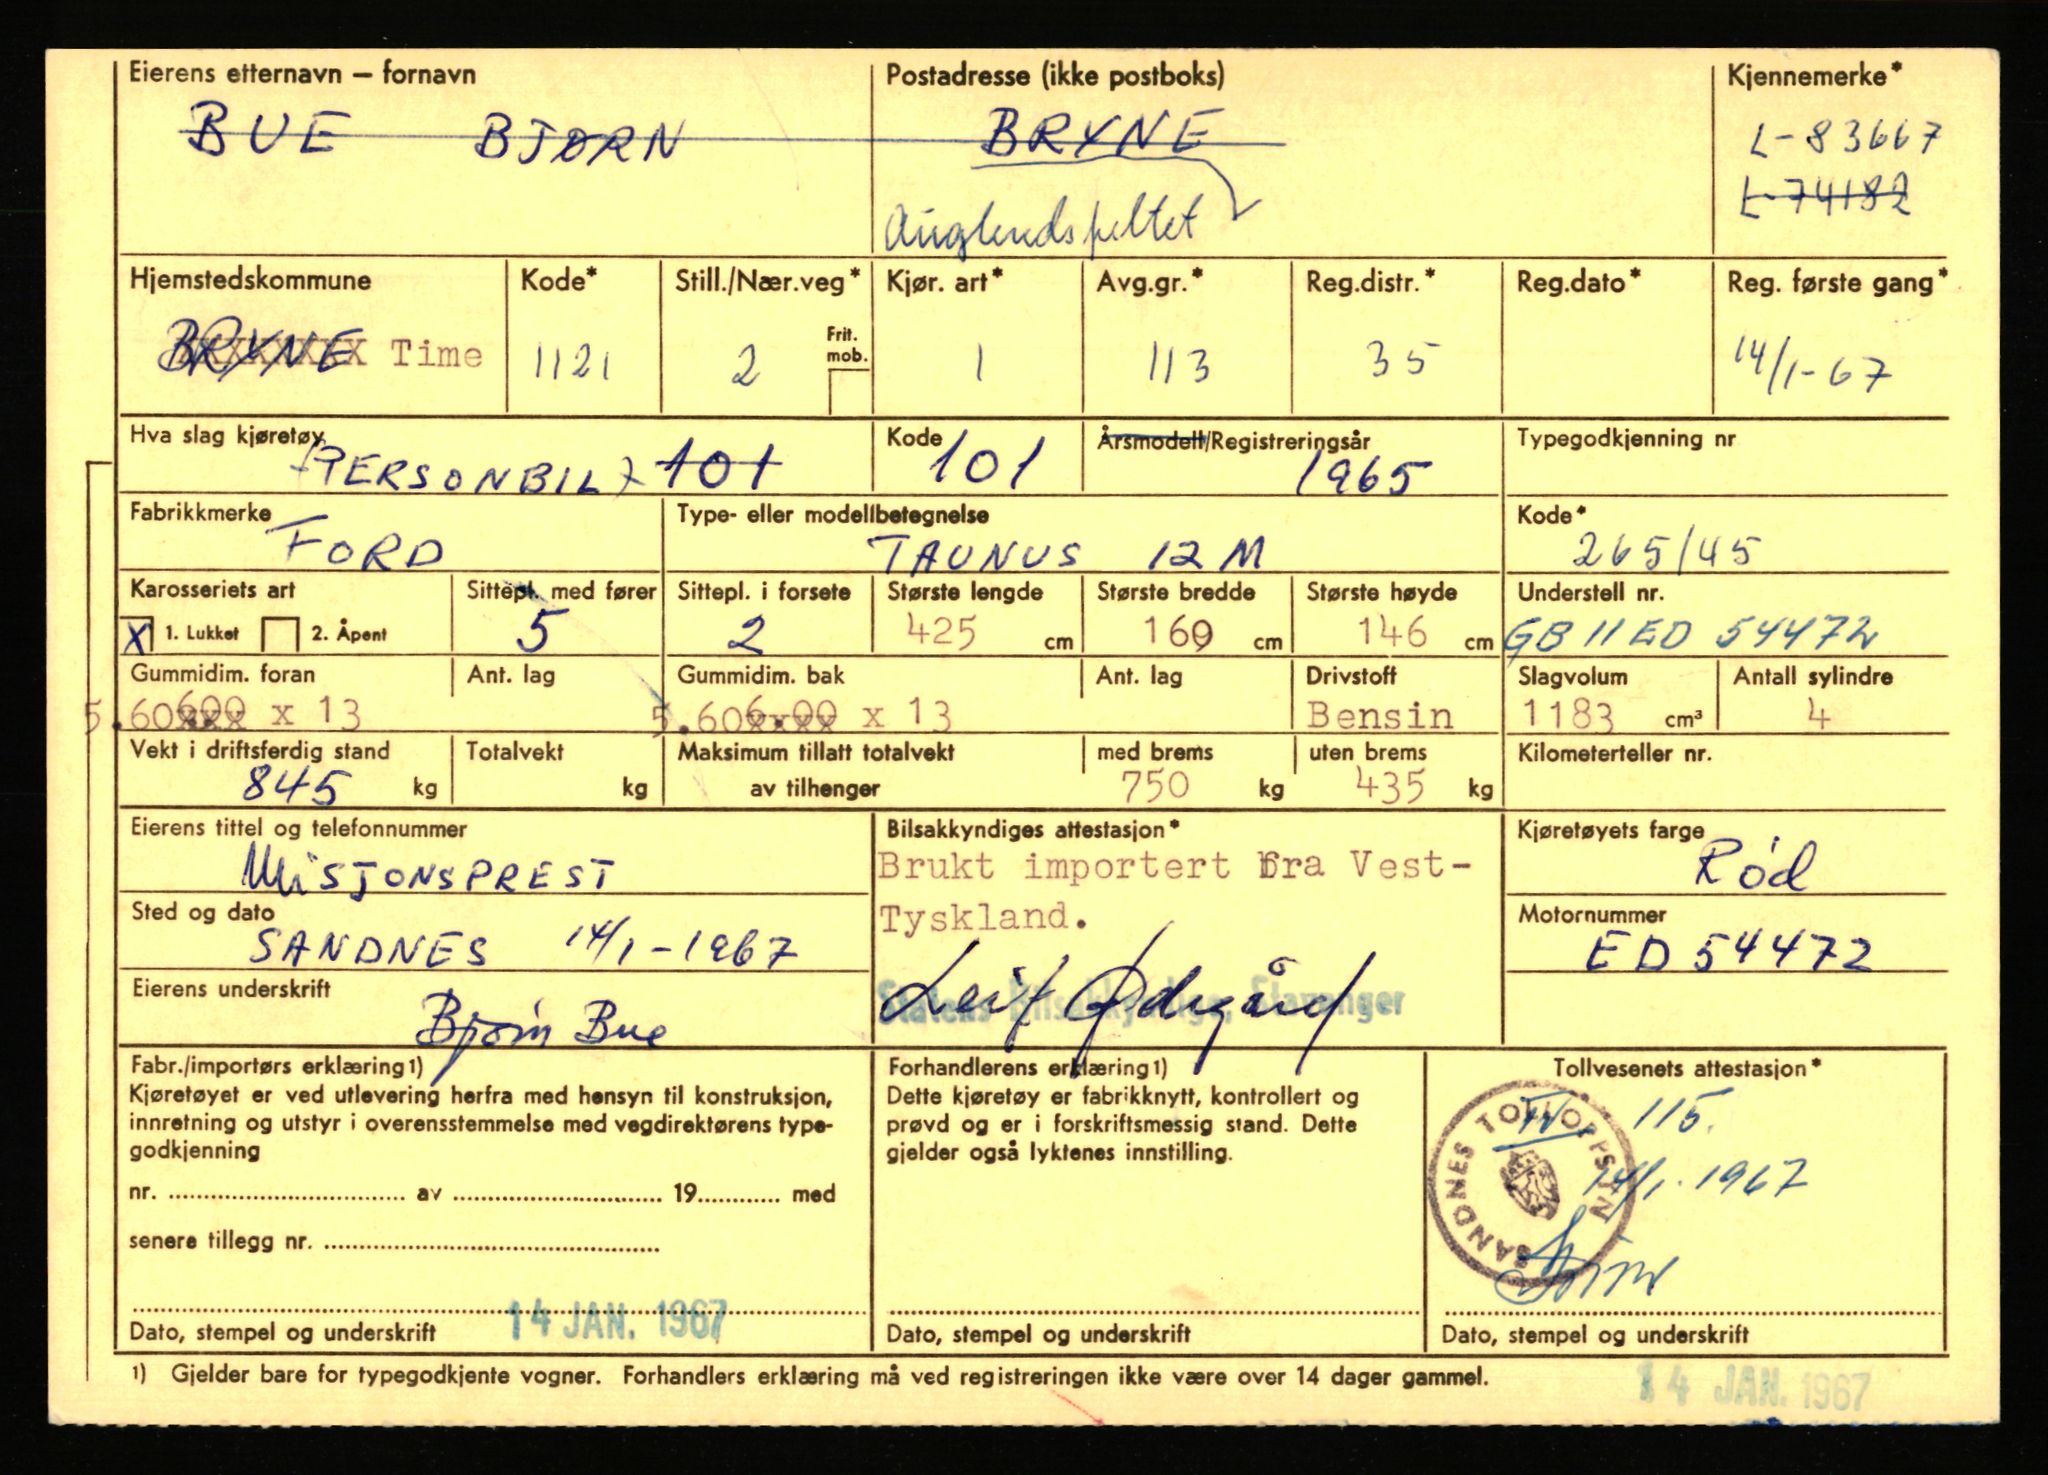 Eierens etternavn – fornavn Postadresse (ikke postboks) Kjennemerke*
BUE BJØRN BRYNE L-83667
L-74182
Hjemstedskommune Kode* Still./Nær.veg* Kjør. art* Avg.gr.* Reg.distr.* Reg.dato* Reg. første gang*
Frit. mob.
BRYNE Time 1121 2 1 113 35 14/1-67
Hva slag kjøretøy Kode Årsmodell/Registreringsår Typegodkjenning nr
(PERSONBIL) 101 101 1965
Fabrikkmerke Type- eller modellbetegnelse Kode*
FORD TAUNUS 12 M 265/45
Karosseriets art Sittepl. med fører Sittepl. i forsete Største lengde Største bredde Største høyde Understell nr.
X 1. Lukket 2. Åpent 5 2 425 cm 169 cm 146 cm GB 11 ED 54472
Gummidim. foran Ant. lag Gummidim. bak Ant. lag Drivstoff Slagvolum Antall sylindre
5.60 6.00 x 13 5.60 6.00 x 13 Bensin 1183 cm³ 4
Vekt i driftsferdig stand Totalvekt Maksimum tillatt totalvekt med brems uten brems Kilometerteller nr.
845 kg kg av tilhenger 750 kg 435 kg
Eierens tittel og telefonnummer Bilsakkyndiges attestasjon* Kjøretøyets farge
MISJONSPREST Brukt importert fra Vest- Rød
Sted og dato Tyskland. Motornummer
SANDNES 14/1-1967 ED 54472
Eierens underskrift Statens Bilsakkyndige, Stavanger
Bjørn Bue Leif Ødegård
Fabr./importørs erklæring1) Forhandlerens erklæring1) Tollvesenets attestasjon*
Kjøretøyet er ved utlevering herfra med hensyn til konstruksjon, Dette kjøretøy er fabrikknytt, kontrollert og 115.
innretning og utstyr i overensstemmelse med vegdirektørens type- prøvd og er i forskriftsmessig stand. Dette
godkjenning gjelder også lyktenes innstilling.
SANDNES TOLLOPPSYN
14/1. 1967
nr. av 19 med
senere tillegg nr.
14 JAN. 1967
Dato, stempel og underskrift Dato, stempel og underskrift Dato, stempel og underskrift
1) Gjelder bare for typegodkjente vogner. Forhandlers erklæring må ved registreringen ikke være over 14 dager gammel.
14 JAN. 1967